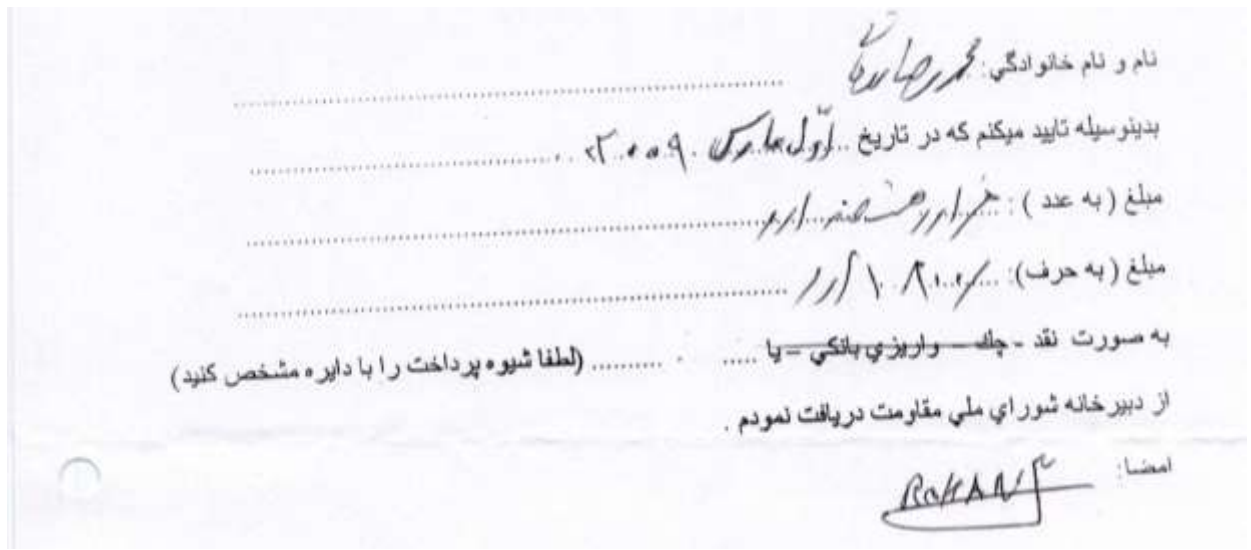 نام و نام خانوادگي: محمد رضا روحانی
بدينوسيله تاييد ميكنم كه در تاريخ .. اوّل مارس ۲۰۰۹ ..
مبلغ ( به عدد ) : هزار و هشتصد ارو
مبلغ ( به حرف): ۱۸۰۰/ ارو
به صورت نقد - چك - واريزي بانكي - يا ..... .......... (لطفا شيوه پرداخت را با دايره مشخص كنيد)
از دبيرخانه شوراي ملي مقاومت دريافت نمودم .
امضا: ROHANI